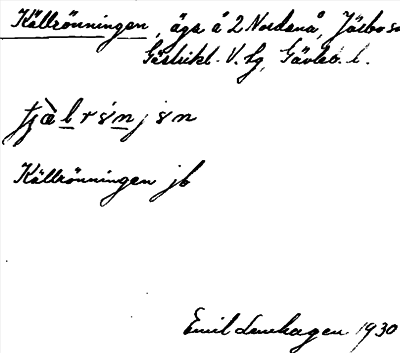 Källrönningen, äga å 2 Nordanå, Järbo sn
Gästrikl. V. tg, Gävleb. l.
Källrönningen jb
Emil Lenehagen 1930